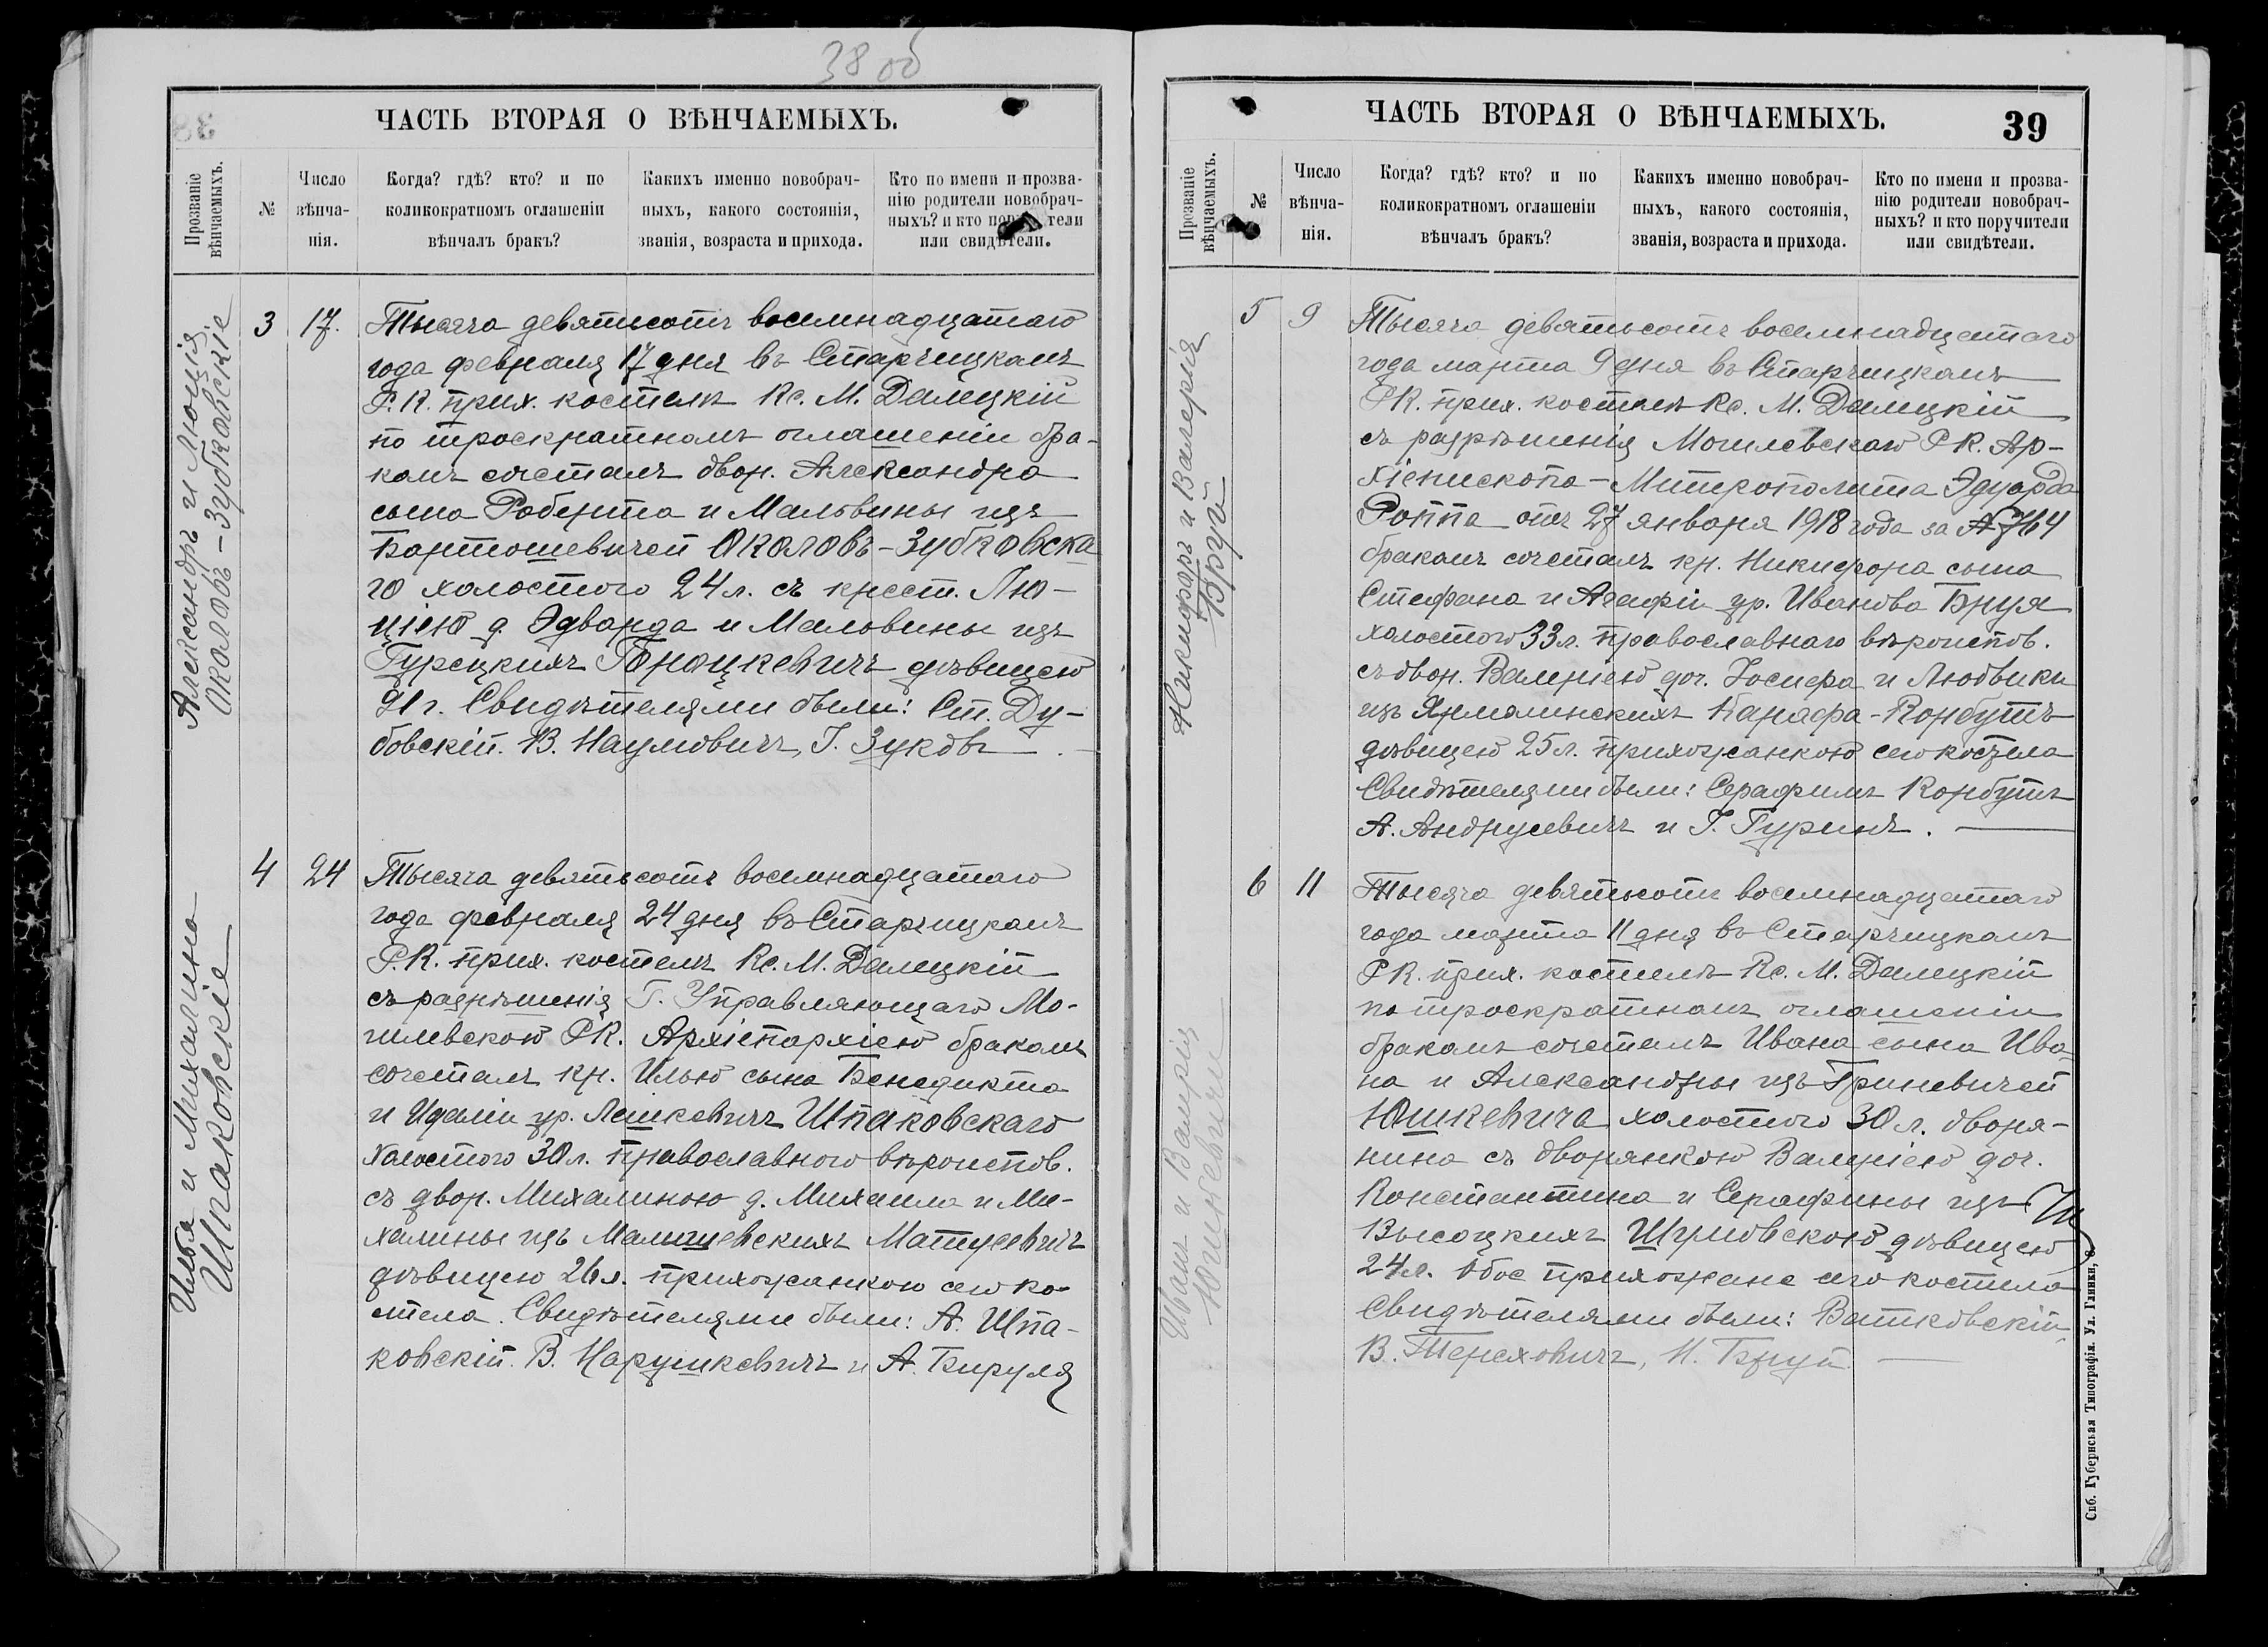 38 об
ЧАСТЬ ВТОРАЯ О ВѢНЧАЕМЫХЪ.
Прозваніе вѣнчаемыхъ.
№
Число вѣнча-нія.
Когда? гдѣ? кто? и по
коликократномъ оглашеніи
вѣнчалъ бракъ?
Какихъ именно новобрач-
ныхъ, какого состоянія,
званія, возраста и прихода.
Кто по имени и прозва-
нію родители новобрач-
ныхъ? и кто поручители
или свидѣтели.
Александръ и Люція
Околовъ-Зубковскіе
3 17.
Тысяча девятьсотъ восемнадцатаго
года февраля 17 дня въ Старчицкомъ
Р.К. прих. костелѣ Кс. М. Далецкій
по троекратномъ оглашеніи бра-
комъ сочеталъ двор. Александра
сына Роберта и Мальвины изъ
Бартошевичей Околовъ-Зубковска
го холостого 24 л. съ крест. Лю-
ціею д. Эдварда и Мальвины изъ
Турецкихъ Гроцкевичъ дѣвицею
21 г. Свидѣтелями были: Ст. Ду-
бовскій. В. Наумовичъ, І. Зуковъ
Илья и Михалина
Шпаковскіе
4 24
Тысяча девятьсотъ восемнадцатаго
года февраля 24 дня въ Старчицкомъ
Р.К. прих. костелѣ Кс. М. Далецкій
съ разрѣшенія Г. Управляющаго Мо-
гилевскою РК. Архіепархіею бракомъ
сочеталъ кр. Илью сына Бенедикта
и Идаліи ур. Лешкевичъ Шпаковскаго
холостого 30 л. православнаго вѣроиспов.
съ двор. Михалиною д. Михаила и Ми-
халины изъ Малишевскихъ Матусевичъ
дѣвицею 26 л. прихожанкою сего ко-
стела. Свидѣтелями были: А. Шпа-
ковскій. В. Нарушкевичъ и А. Бируля
ЧАСТЬ ВТОРАЯ О ВѢНЧАЕМЫХЪ.
39
Прозваніе вѣнчаемыхъ.
№
Число вѣнча-нія.
Когда? гдѣ? кто? и по
коликократномъ оглашеніи
вѣнчалъ бракъ?
Какихъ именно новобрач-
ныхъ, какого состоянія,
званія, возраста и прихода.
Кто по имени и прозва-
нію родители новобрач-
ныхъ? и кто поручители
или свидѣтели.
Никифоръ и Валерія
Бруй
5 9
Тысяча девятьсотъ восемнадцатаго
года марта 9 дня въ Старчицкомъ
РК. прих. костелѣ Кс. М. Далецкій
съ разрѣшенія Могилевскаго РК. Ар-
хіепископа-Митрополита Эдуарда
Роппа отъ 27 января 1918 года за № 764
бракомъ сочеталъ кр. Никифора сына
Стефана и Агафіи ур. Иванова Бруя
холостого 33 л. православнаго вѣроиспов.
съ двор. Валеріею доч. Іосифа и Людвики
изъ Ярмолинскихъ Карафа-Корбутъ
дѣвицею 25 л. прихожанкою сего костела
Свидѣтелями были: Серафимъ Корбутъ
А. Андрусевичъ и Г. Гуринъ.
Иванъ и Валерія
Юшкевичи
6 11
Тысяча девятьсотъ восемнадцатаго
года марта 11 дня въ Старчицкомъ
РК. прих. костелѣ Кс. М. Далецкій
по троекратномъ оглашеніи
бракомъ сочеталъ Ивана сына Ива-
на и Александры изъ Гриневичей
Юшкевича холостого 30 л. дворя-
нина съ дворянкою Валеріею доч.
Константина и Серафины изъ
Высоцкихъ дѣвицею
24 л. Обое прихожане сего костела
Свидѣтелями были: Ватковскій
В. Тереховичъ, Н. Бруй
Спб. Губернская Типографія. Ул. Глинки, 8.